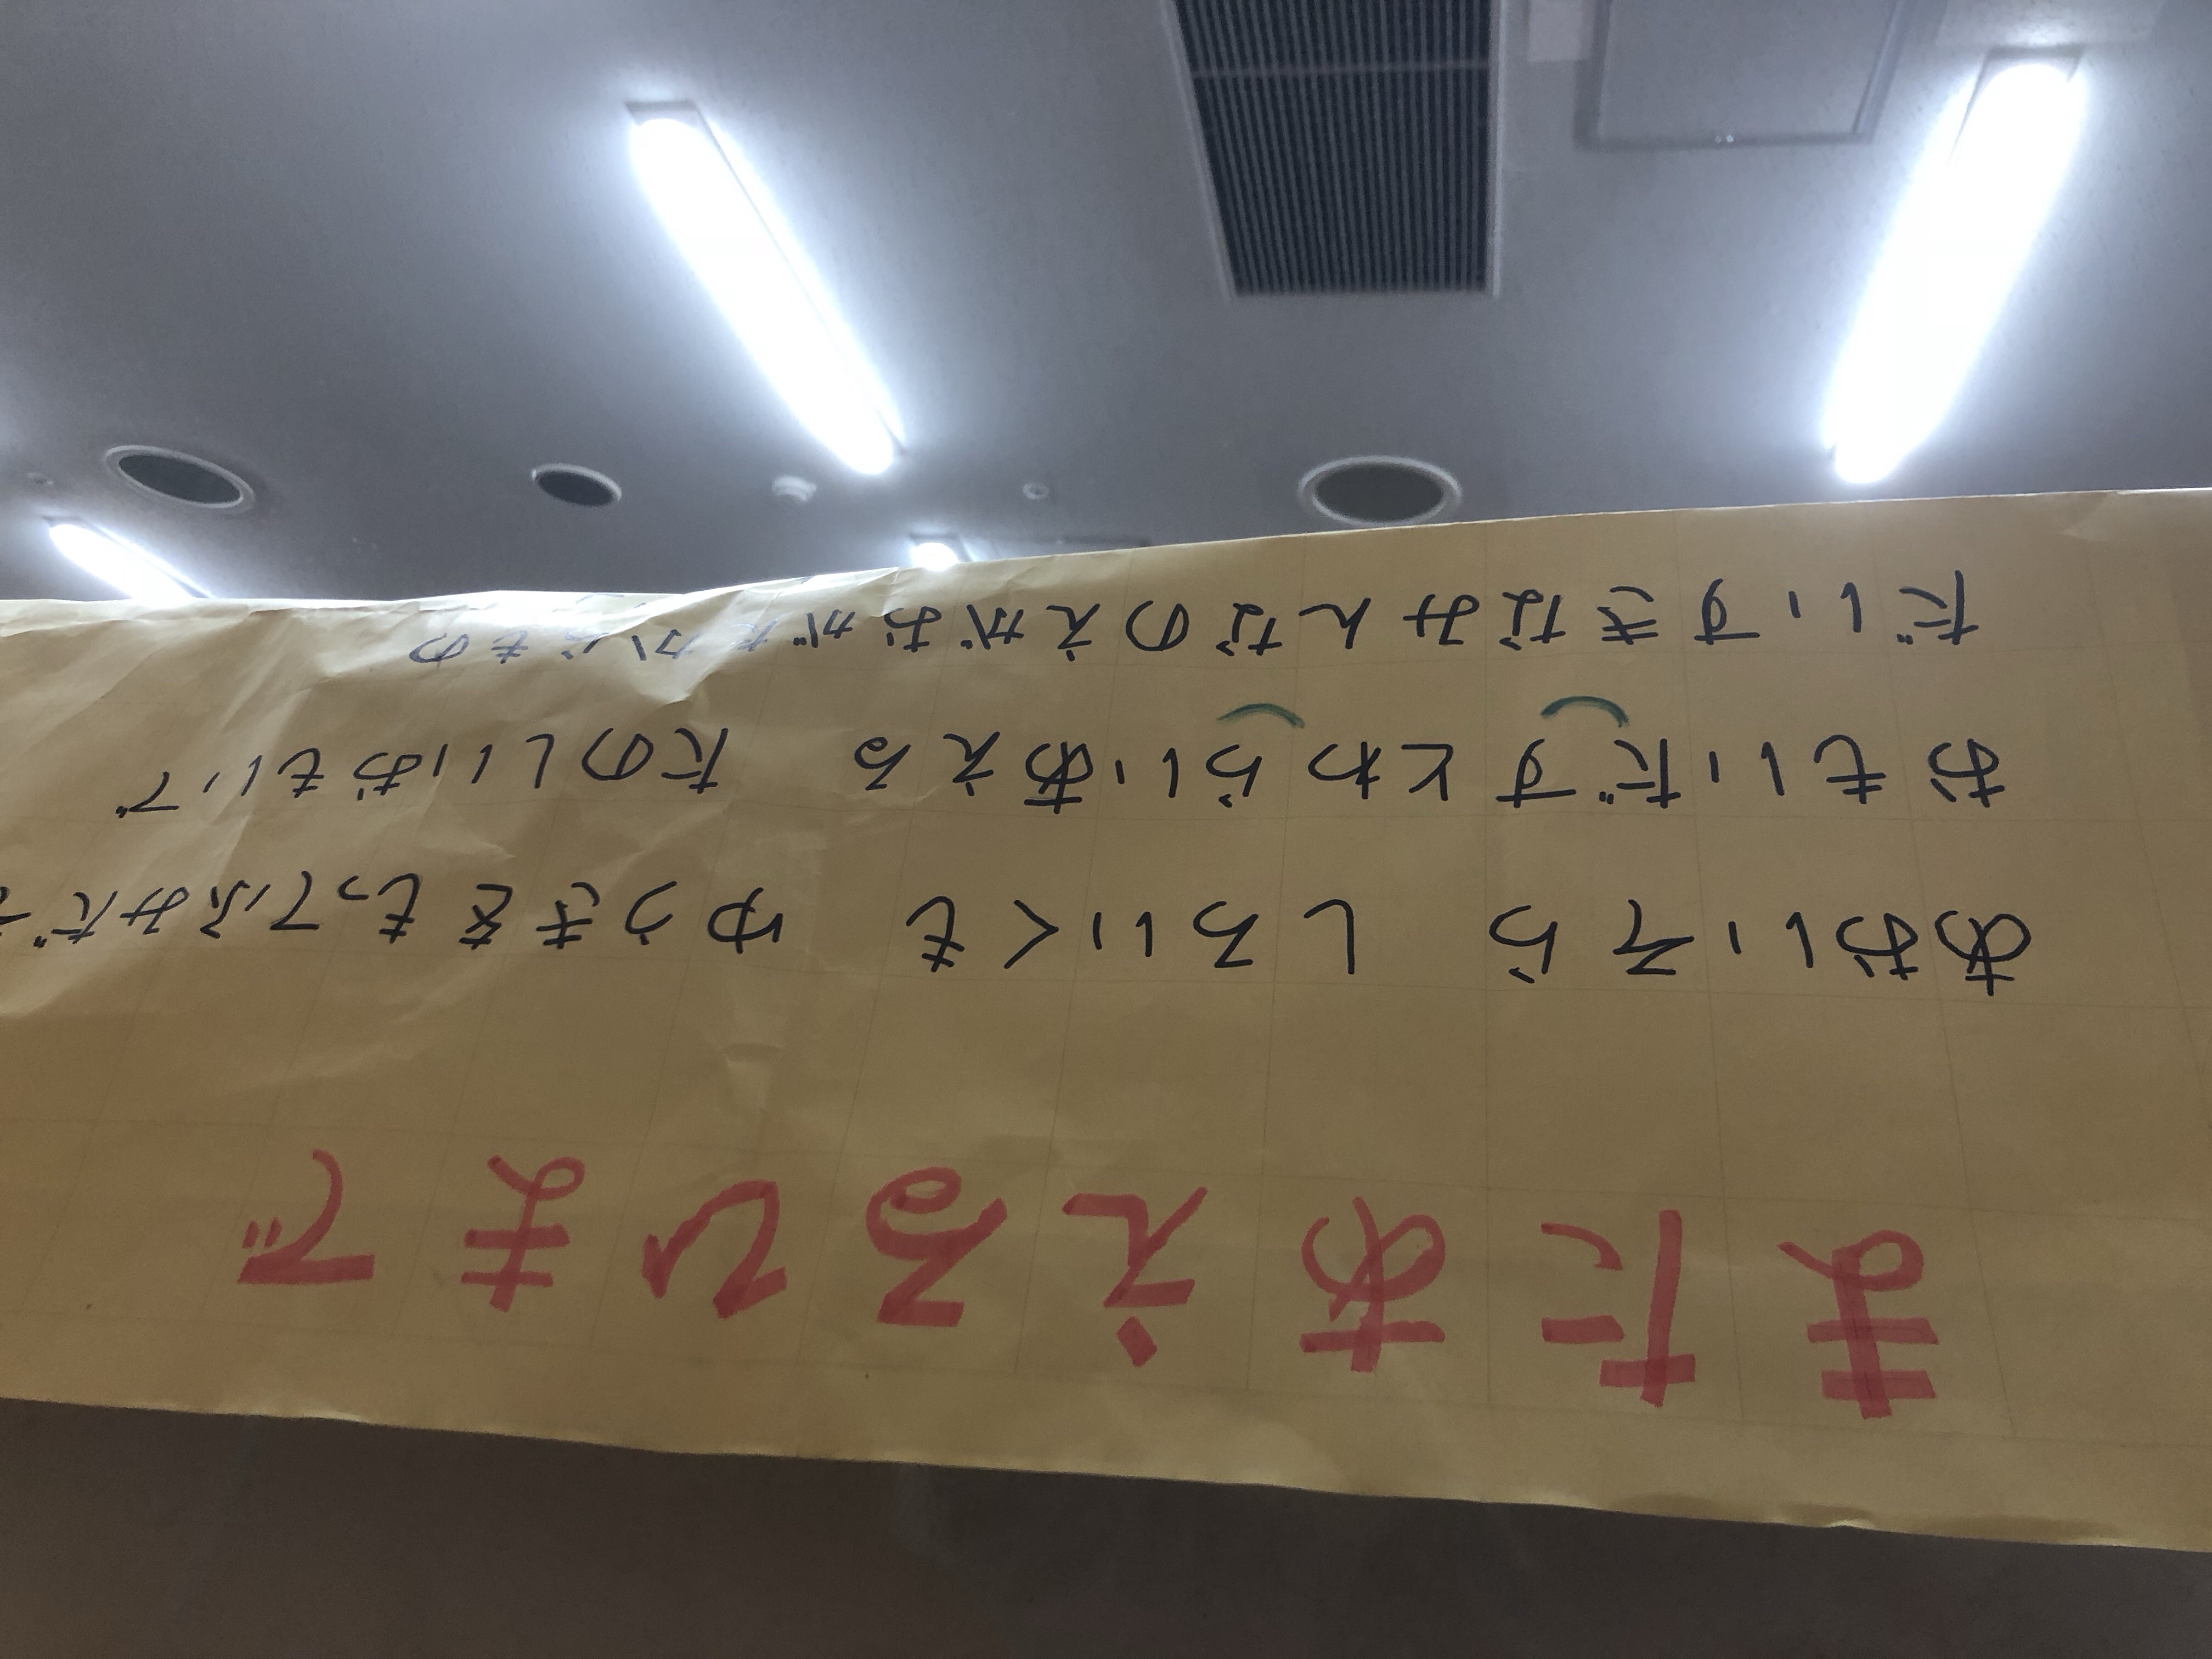 またあえるひまで
あおいそら しろいくも ゆうきをもってふみだそ
おもいだすとわらいあえる たのしいおもいで
だいすきなみんなのえがおがたからもの